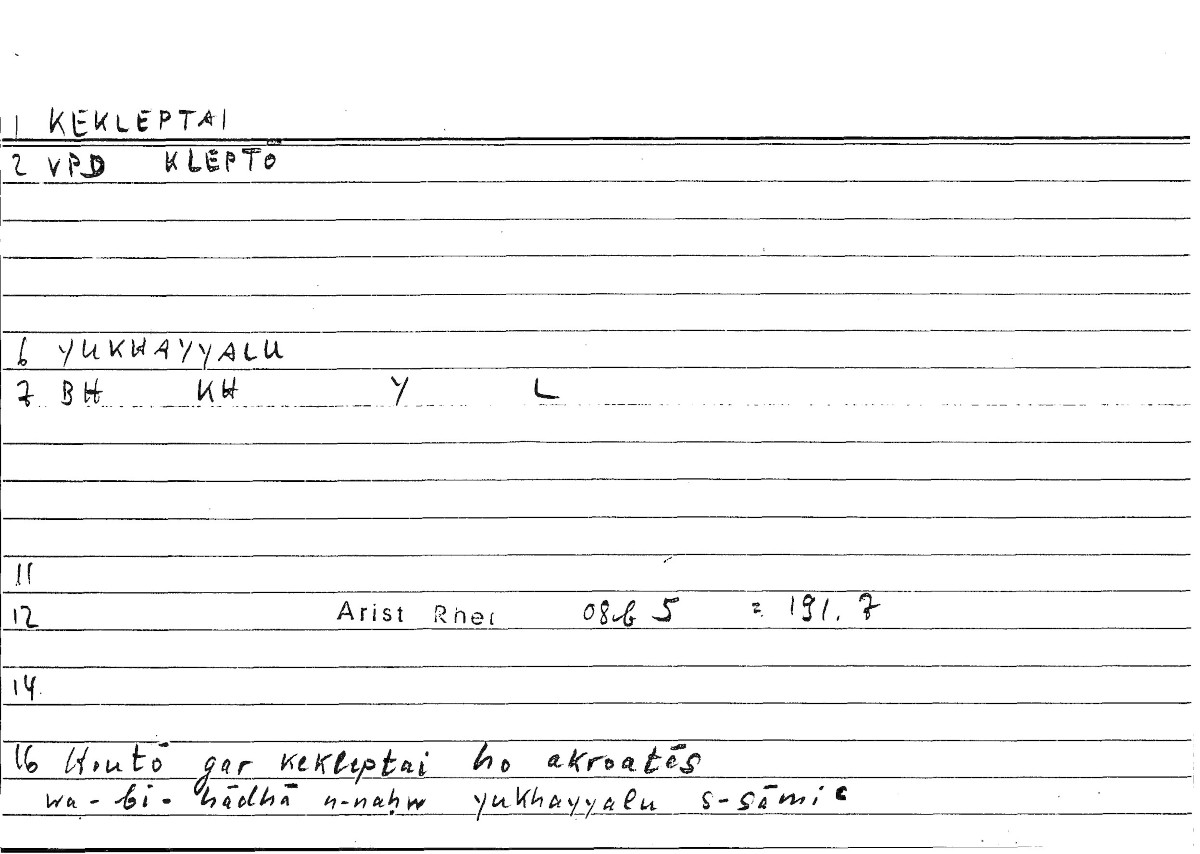 1 KEKLEPTAI
2 VPD KLEPTŌ
6 YUKHAYYALU
7 BH KH Y L
11
12 Arist Rhet 08b 5 = 191.7
14.
16 Houtō gar kekleptai ho akroatēs
wa-bi-hādhā n-naḥw yukhayyalu s-sāmiʿ